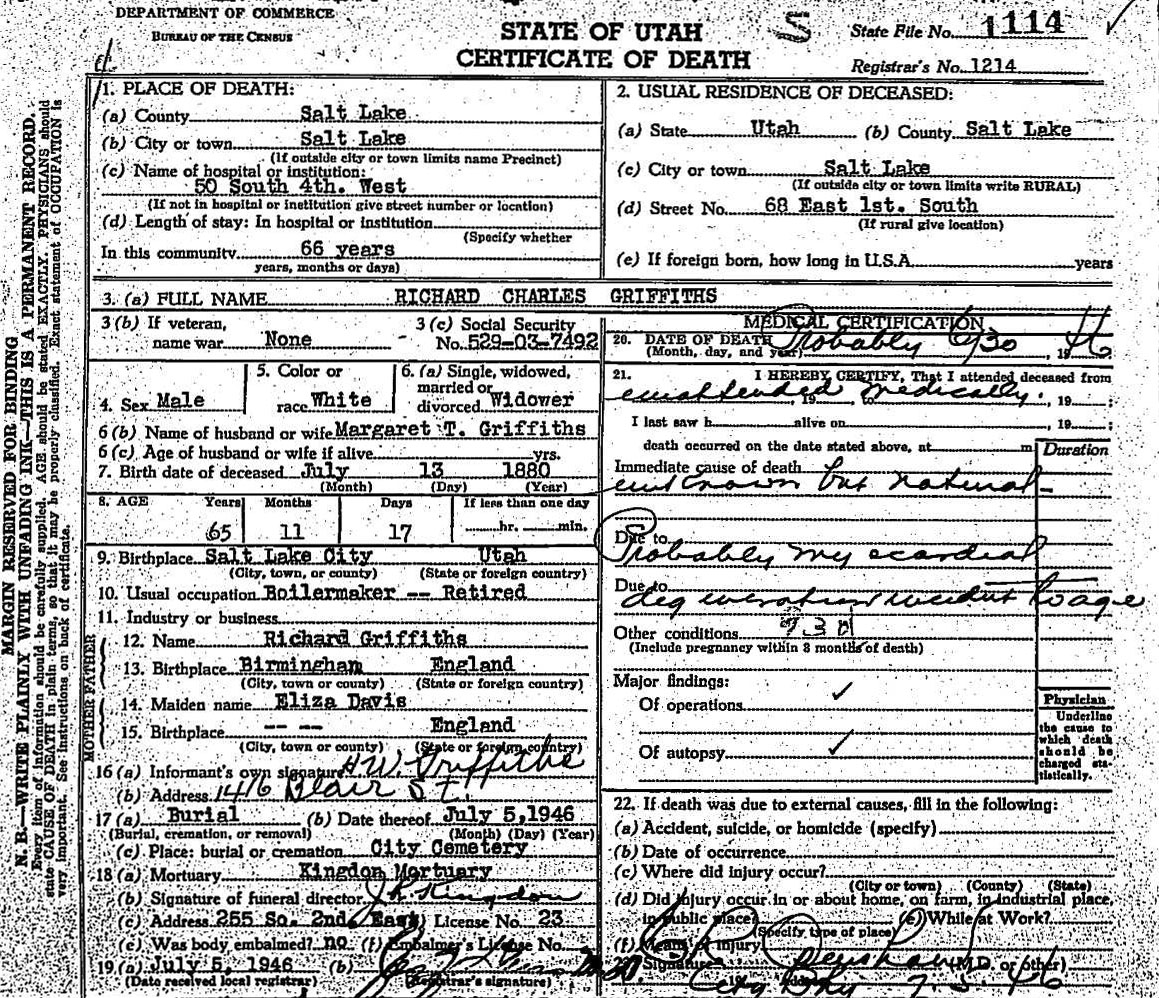 DEPARTMENT OF COMMERCE
BUREAU OF THE CENSUS
STATE OF UTAH
CERTIFICATE OF DEATH
S
State File No. 1114
Registrar's No. 1214
MARGIN RESERVED FOR BINDING
N. B.—WRITE PLAINLY WITH UNFADING INK—THIS IS A PERMANENT RECORD.
Every item of information should be carefully supplied. AGE should be stated EXACTLY. PHYSICIANS should
state CAUSE OF DEATH in plain terms, so that it may be properly classified. Exact statement of OCCUPATION is
very important. See instructions on back of certificate.
1. PLACE OF DEATH:
(a) County Salt Lake
(b) City or town Salt Lake
(If outside city or town limits name Precinct)
(c) Name of hospital or institution:
50 South 4th. West
(If not in hospital or institution give street number or location)
(d) Length of stay: In hospital or institution
(Specify whether
In this community 66 years
years, months or days)
2. USUAL RESIDENCE OF DECEASED:
(a) State Utah (b) County Salt Lake
(c) City or town Salt Lake
(If outside city or town limits write RURAL)
(d) Street No. 68 East 1st. South
(If rural give location)
(e) If foreign born, how long in U.S.A. years
3. (a) FULL NAME RICHARD CHARLES GRIFFITHS
3 (b) If veteran,
name war None
3 (c) Social Security
No. 529-03-7492
4. Sex Male
5. Color or
race White
6. (a) Single, widowed,
married or
divorced Widower
6 (b) Name of husband or wife Margaret T. Griffiths
6 (c) Age of husband or wife if alive yrs.
7. Birth date of deceased July 13 1880
(Month) (Day) (Year)
8. AGE Years Months Days If less than one day
65 11 17 hr. min.
9. Birthplace Salt Lake City Utah
(City, town, or county) (State or foreign country)
10. Usual occupation Boilermaker -- Retired
11. Industry or business
FATHER
12. Name Richard Griffiths
13. Birthplace Birmingham England
(City, town or county) (State or foreign country)
MOTHER
14. Maiden name Eliza Davis
15. Birthplace -- -- England
(City, town or county) (State or foreign country)
16 (a) Informant's own signature H.W. Griffiths
(b) Address 1476 Blair St.
17 (a) Burial (b) Date thereof July 5, 1946
(Burial, cremation, or removal) (Month) (Day) (Year)
(c) Place: burial or cremation City Cemetery
18 (a) Mortuary Kingdon Mortuary
(b) Signature of funeral director Kingdon
(c) Address 255 So. 2nd. East License No. 23
(e) Was body embalmed? no (f) Embalmer's License No.
19 (a) July 5, 1946 (b)
(Date received local registrar) (Registrar's signature)
MEDICAL CERTIFICATION
20. DATE OF DEATH Probably 6/30, 1946
(Month, day, and year)
21. I HEREBY CERTIFY, That I attended deceased from
unattended medically. , 19 to , 19 ;
I last saw h alive on , 19 ;
death occurred on the date stated above, at m
Duration
Immediate cause of death
unknown but natural
Due to
Probably myocardial
Due to
degeneration incident to age
Other conditions 93d
(Include pregnancy within 3 months of death)
Major findings:
Of operations ✓
Of autopsy ✓
Physician
Underline
the cause to
which death
should be
charged sta-
tistically.
22. If death was due to external causes, fill in the following:
(a) Accident, suicide, or homicide (specify)
(b) Date of occurrence
(c) Where did injury occur?
(City or town) (County) (State)
(d) Did injury occur in or about home, on farm, in industrial place,
in public place? (e) While at Work?
(Specify type of place)
(f) Means of injury
23. Signature (M.D. or other)